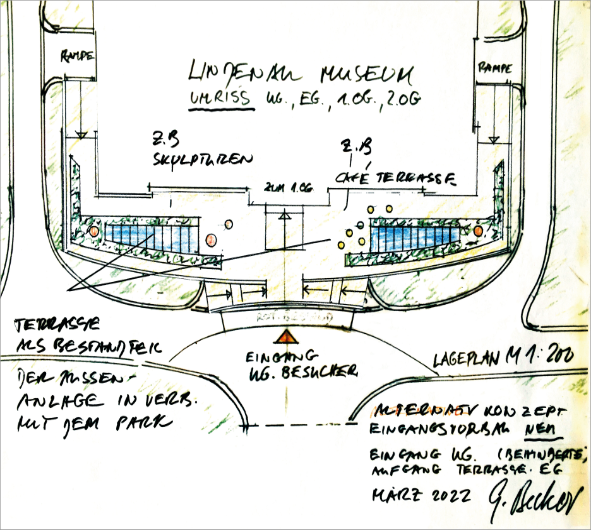 RAMPE
RAMPE
LINDENAU MUSEUM
UMRISS UG., EG., 1.OG., 2.OG
Z.B
SKULPTUREN
Z.B
CAFÉ TERRASSE
ZUM 1.OG
TERRASSE
ALS BESTANDTEIL
DER AUSSEN-
ANLAGE IN VERB.
MIT DEM PARK
EINGANG
UG. BESUCHER
LAGEPLAN M 1:200
ALTERNATIV KONZEPT
EINGANGSVORBAU NEU
EINGANG UG. (BEHINDERTE)
AUFGANG TERRASSE. EG
MÄRZ 2022 G. Becker